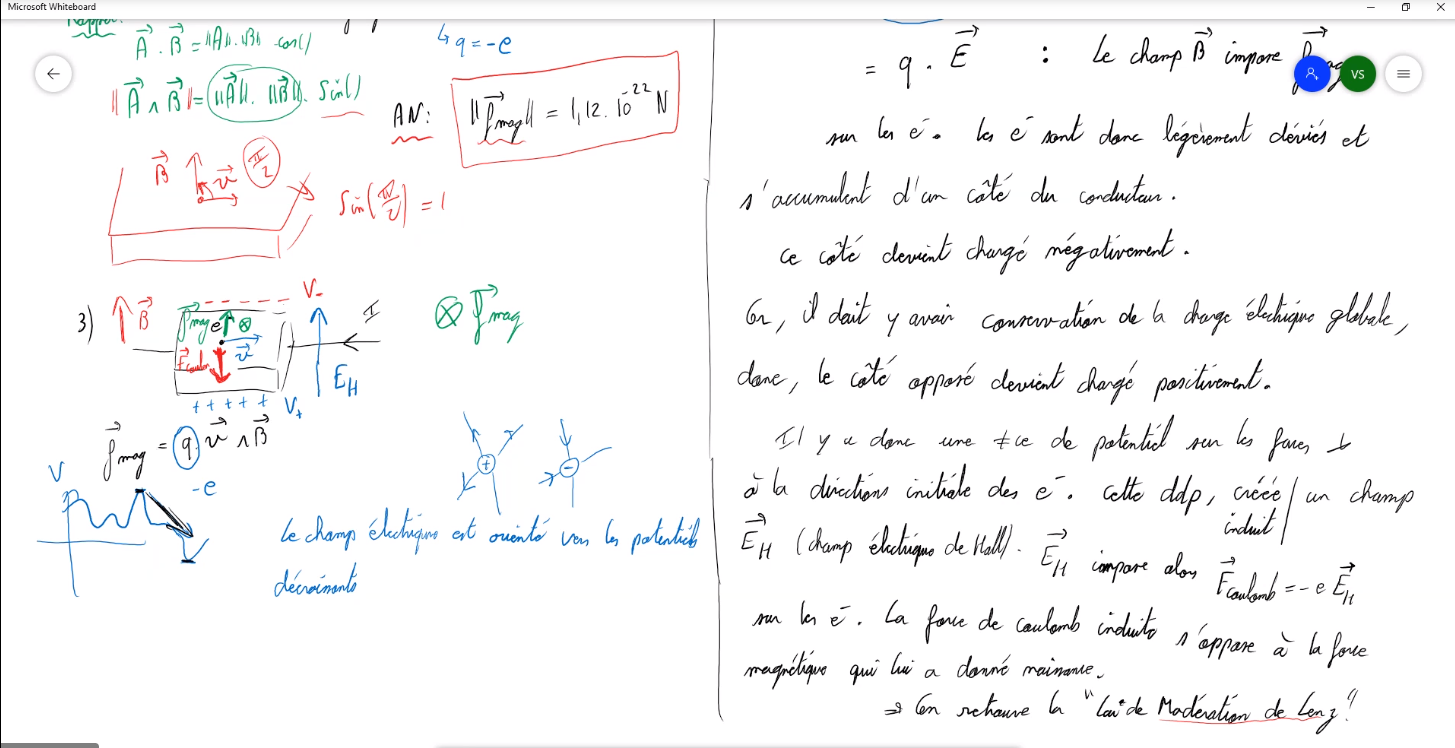 Microsoft Whiteboard
Rappel:
A⃗ . B⃗ = ||A|| . ||B|| . cos()
|| A⃗ ∧ B⃗ || = ||A⃗||. ||B⃗||. Sin()
↳ q = -e
AN: ||f⃗mag|| = 1,12. 10⁻²² N
B⃗ v⃗ π/2
Sin(π/2) = 1
3) B⃗ - - - - - - V-
f⃗mag e⁻ ⊗ v⃗ I
F⃗coulomb
E_H
+ + + + + V+
⊗ f⃗mag
f⃗mag = q. v⃗ ∧ B⃗
-e
V
+ -
Le champ électrique est orienté vers les potentiels
décroissants
= q . E⃗ : Le champ B⃗ impose
VS
sur les e⁻. les e⁻ sont donc légèrement déviés et
s'accumulent d'un côté du conducteur.
ce côté devient chargé négativement.
Or, il doit y avoir conservation de la charge électrique globale,
donc, le côté opposé devient chargé positivement.
Il y a donc une ≠ce de potentiel sur les faces ⊥
à la directions initiale des e⁻. Cette ddp, créée / un champ
induit
E⃗_H (champ électrique de Hall). E⃗_H impose alors F⃗coulomb = - e E⃗_H
sur les e⁻. La force de coulomb induite s'oppose à la force
magnétique qui lui a donné naissance.
⇒ On retrouve la "Loi de Modération de Lenz"!